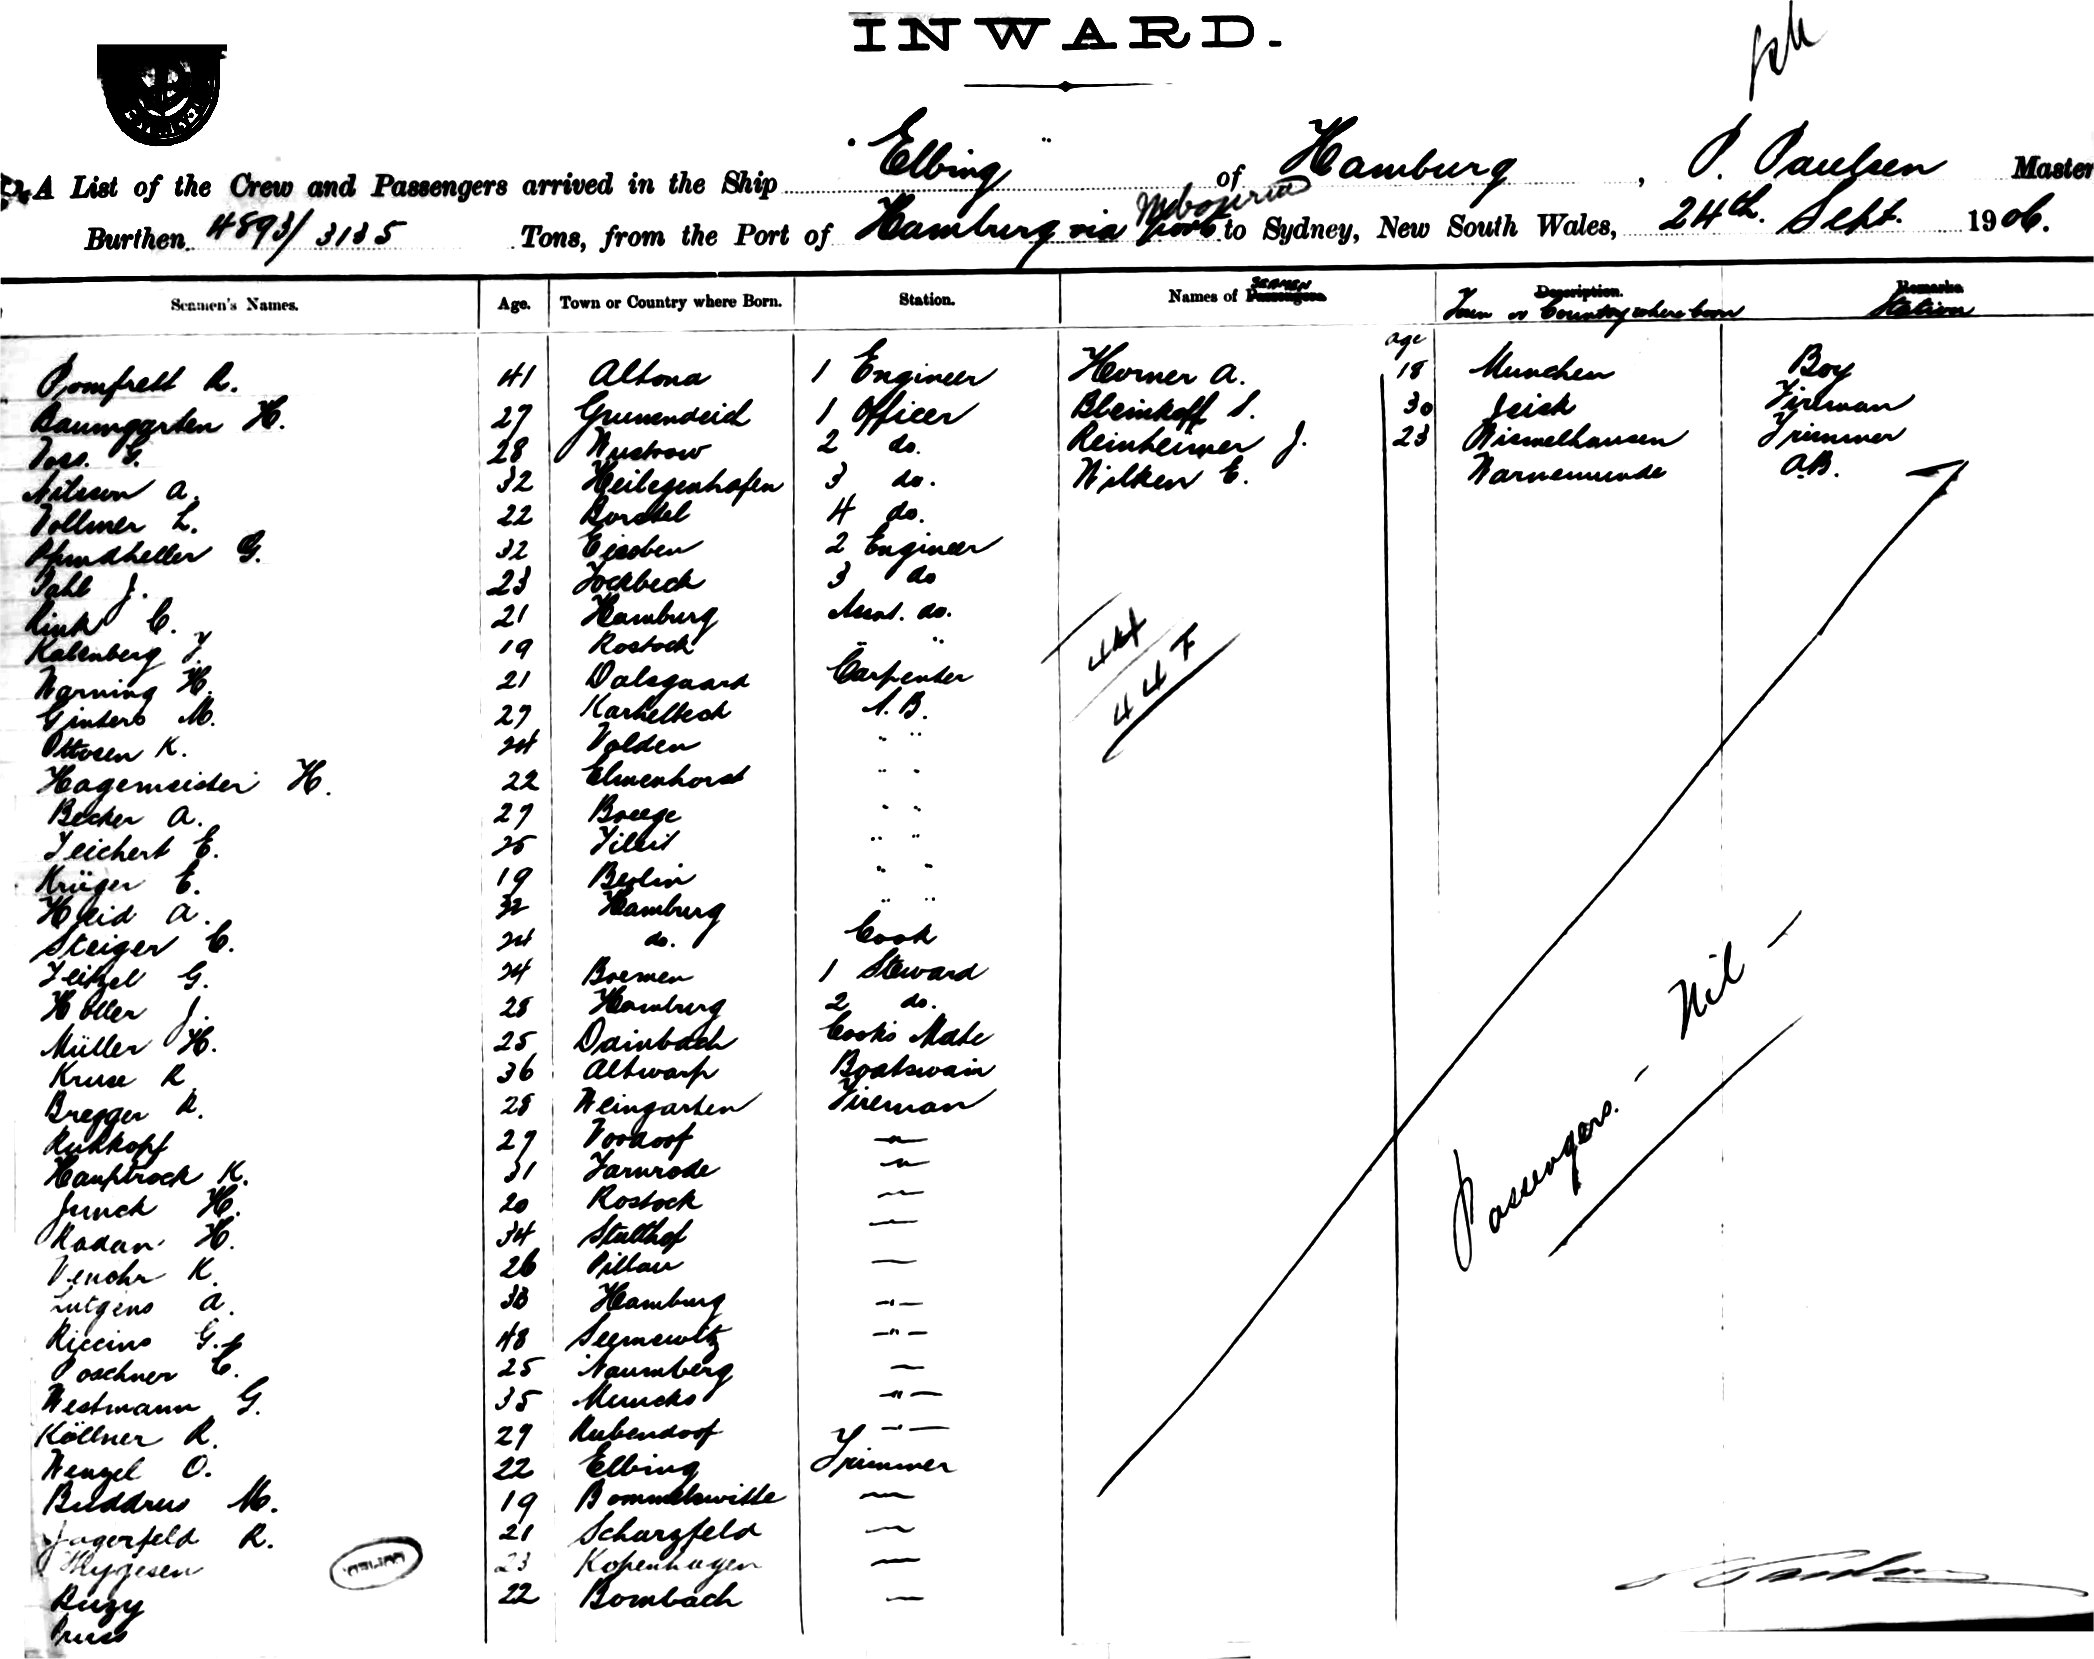 INWARD.
A List of the Crew and Passengers arrived in the Ship "Elbing" of Hamburg, P. Paulsen Master
Burthen 4893/3135 Tons, from the Port of Hamburg via to Sydney, New South Wales, 24th. Sept. 1906.
Seamen's Names. Age. Town or Country where Born. Station. Names of Passengers SEAMEN Description. Town or Country where born Remarks Station
age
Pomfrett R. 41 Altona 1 Engineer Horner A. 18 Munchen Boy
Baumgarten H. 27 Grunendeich 1 Officer Bleinkoff S. 30 Fireman
Voss. G. 28 Wustrow 2 do. Reinheimer J. 23 Wismelhausen Trimmer
Nilsson A. 32 Heilegenhafen 3 do. Wilken E. Warnemunde A.B.
Vollmer L. 22 Borstel 4 do.
Pfundheller G. 32 Eisoben 2 Engineer
Pahl J. 23 Jockbeck 3 do
Rink C. 21 Hamburg Asst. do.
Kalenberg J. 19 Rostock "
Warning H. 21 Dalsgaard Carpenter
Ginters M. 27 Karkelbeck A.B.
Ottosen K. 24 Volden " "
Hagemeister H. 22 Elmenhorst " "
Becker A. 27 Breege " "
Teichert E. 25 Tilsit " "
Krüger E. 19 Berlin " "
Heid A. 32 Hamburg " "
Steiger C. 24 do. Cook
Teitzel G. 24 Bremen 1 Steward
Holler J. 28 Hamburg 2 do.
Müller H. 25 Dainbach Cooks Mate
Kruse R. 36 Altwarp Boatswain
Bregger R. 28 Weingarten Fireman
Ruhkopf 27 Vordorf —"—
Hauptrock K. 31 Jarnrode —"—
Junck H. 20 Rostock —"—
Radau H. 34 Stutthof —"—
Venohr K. 26 Pillau —"—
Lutgens A. 33 Hamburg —"—
Riccius G. 48 Seemewitz —"—
Poschner C. 25 Naumberg —"—
Westmann G. 35 —"—
Köllner R. 29 Rubendorf —"—
Wenzel O. 22 Elbing Trimmer
Buddrus M. 19 Bommelswitte —"—
Jagerfeld R. 21 Scharzfeld —"—
Thygesen 23 Kopenhagen —"—
Ruzy 22 Bombach —"—
Pruss
44
44 F
Passengers. — Nil —